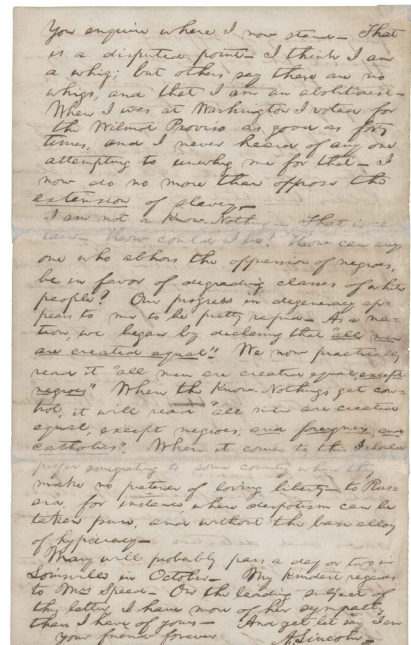 You enquire where I now stand— That
is a disputed point— I think I am
a whig; but others say there are no
whigs, and that I am an abolitionist—
When I was at Washington I voted for
the Wilmot Proviso as good as forty
times, and I never heard of any one
attempting to unwhig me for that— I
now do no more than oppose the
extension of slavery—
I am not a Know-Nothing— That is cer-
tain— How could I be? How can any
one who abhors the oppression of negroes,
be in favor of degrading classes of white
people? Our progress in degeneracy ap-
pears to me to be pretty rapid— As a na-
tion, we began by declaring that "all men
are created equal" We now practically
read it "all men are created equal, except
negroes" When the Know-Nothings get con-
trol, it will read "all men are created
equal, except negroes, and foreigners, and
catholics" When it comes to this I should
prefer emigrating to some country where they
make no pretence of loving liberty— to Rus-
sia, for instance, where despotism can be
taken pure, and without the base alloy
of hypocracy—
Mary will probably pass a day or two in
Louisville in October— My kindest regards
to Mrs Speed— On the leading subject of
this letter, I have more of her sympathy
than I have of yours— And yet let me say I am
Your friend forever
A. Lincoln—